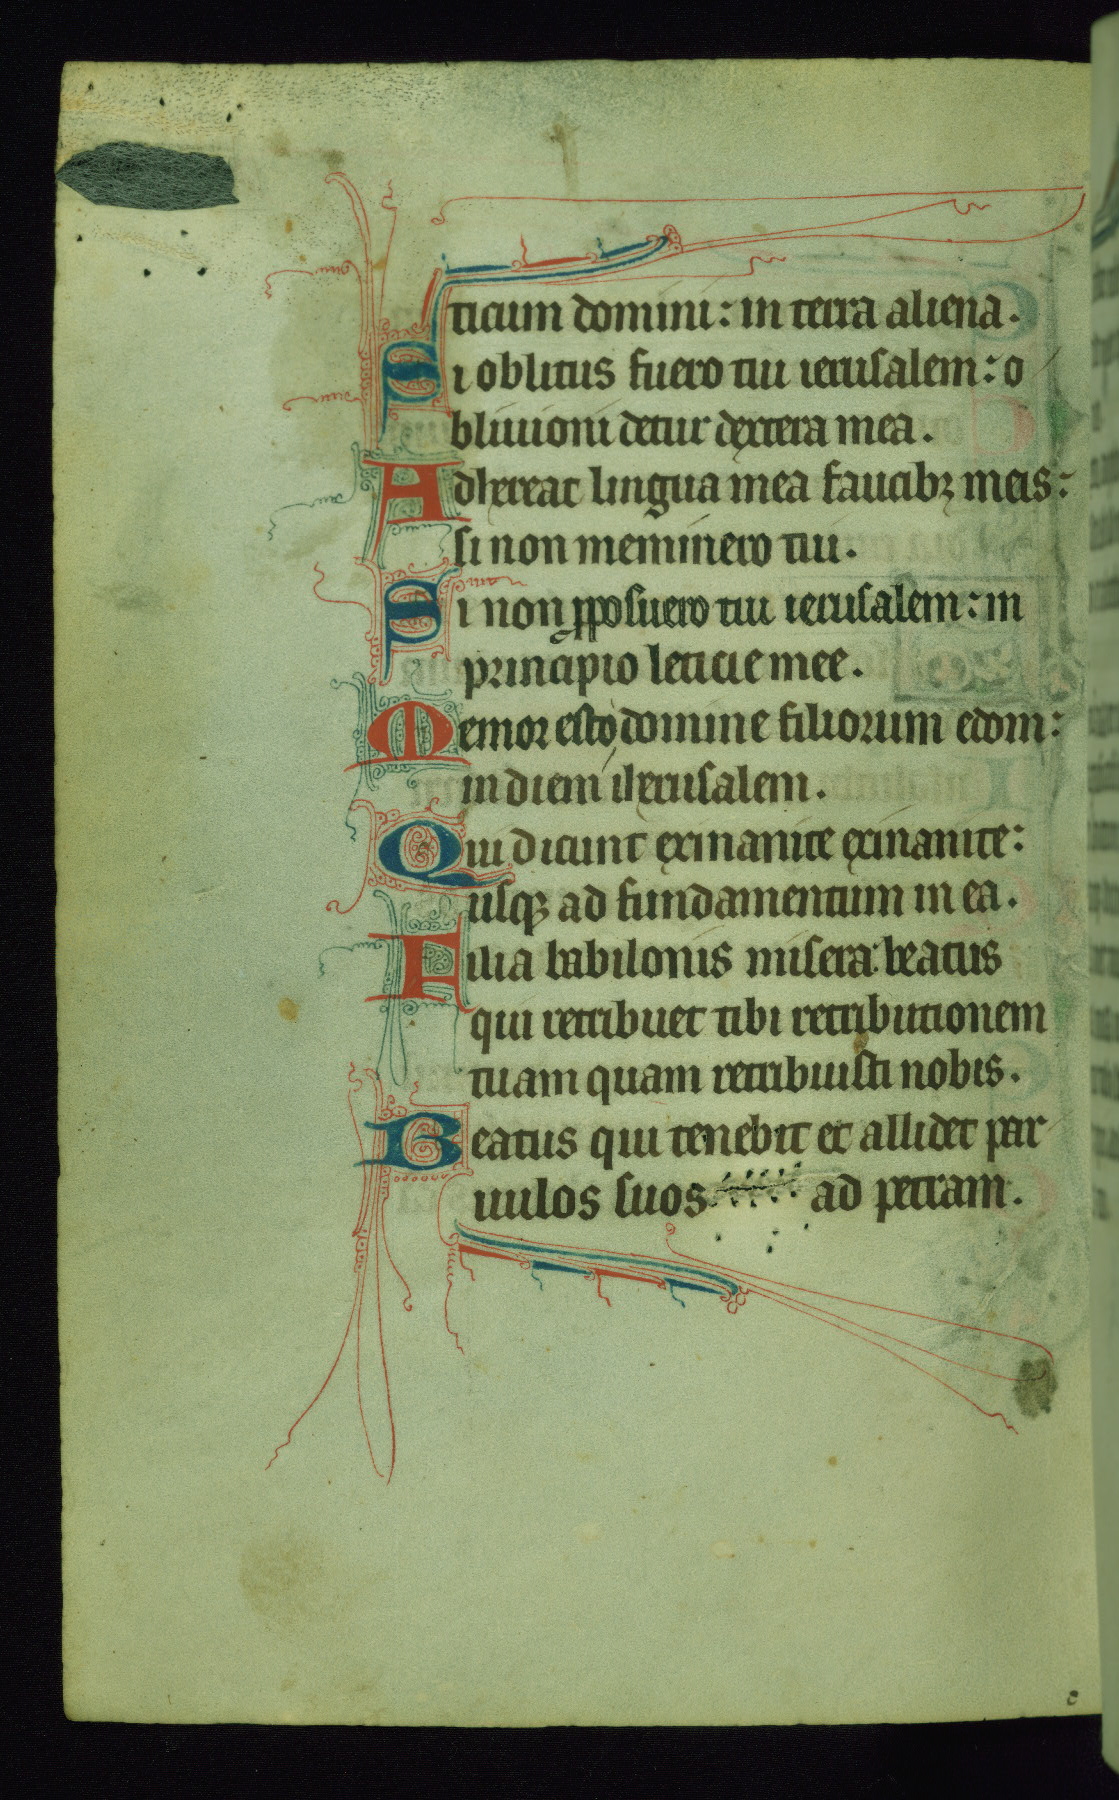 ticum domini: in terra aliena.
Si oblitus fuero tui ierusalem: o
bliuioni detur dextera mea.
Adhereat lingua mea faucibꝫ meis:
si non meminero tui.
Si non ꝓposuero tui ierusalem: in
principio leticie mee.
Memor esto domine filiorum edom:
in diem iherusalem.
Qui dicunt exinanite exinanite:
usqꝫ ad fundamentum in ea.
Filia babilonis misera: beatus
qui retribuet tibi retributionem
tuam quam retribuisti nobis.
Beatus qui tenebit et allidet par
uulos suos ad petram.